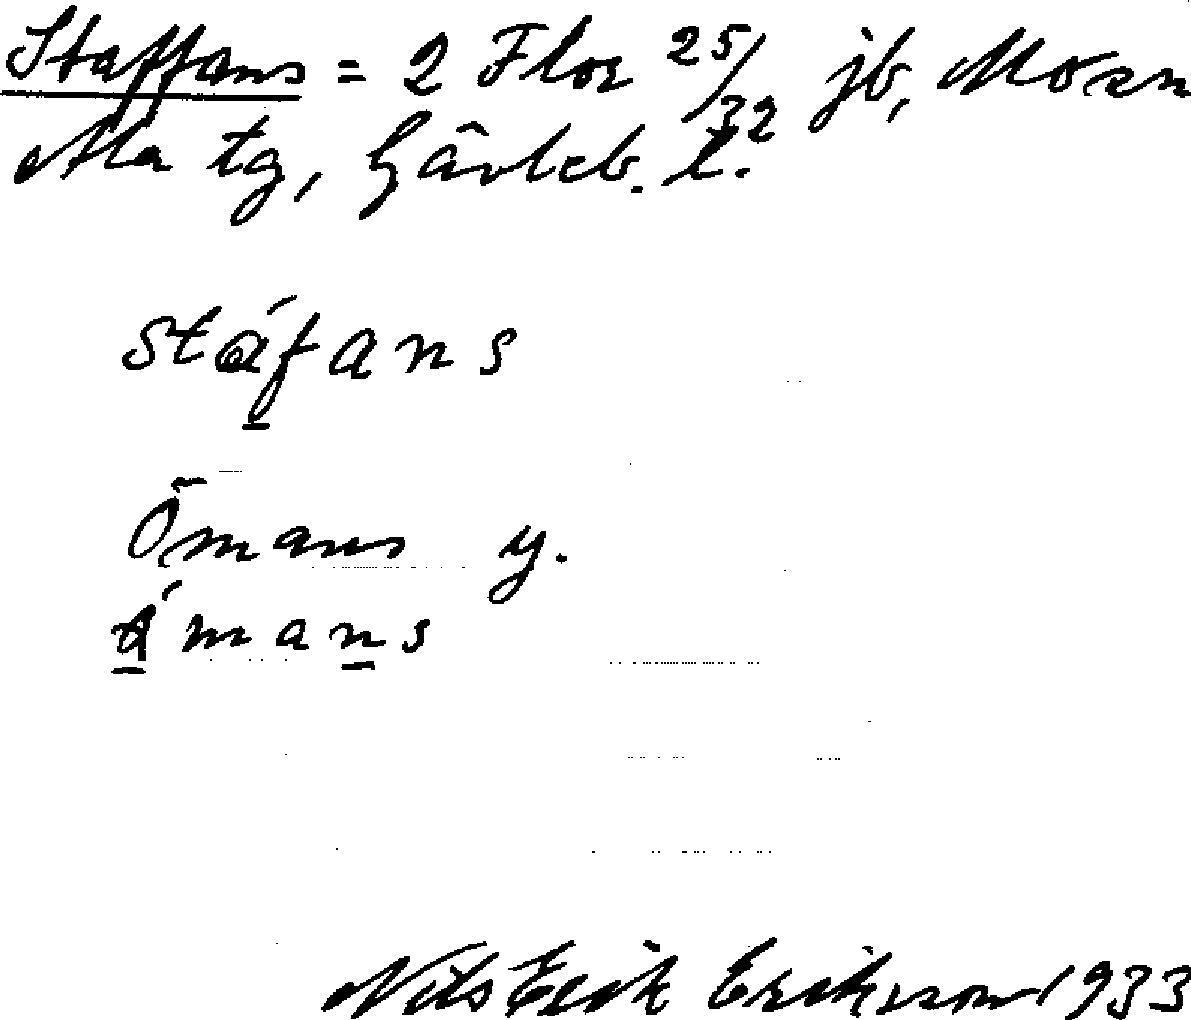 Staffans = 2 Flor 25/32 jb, Mo sn
Ala tg, Gävleb. l.
stáfans
Ömans y.
ámans
Nils Erik Eriksson 1933